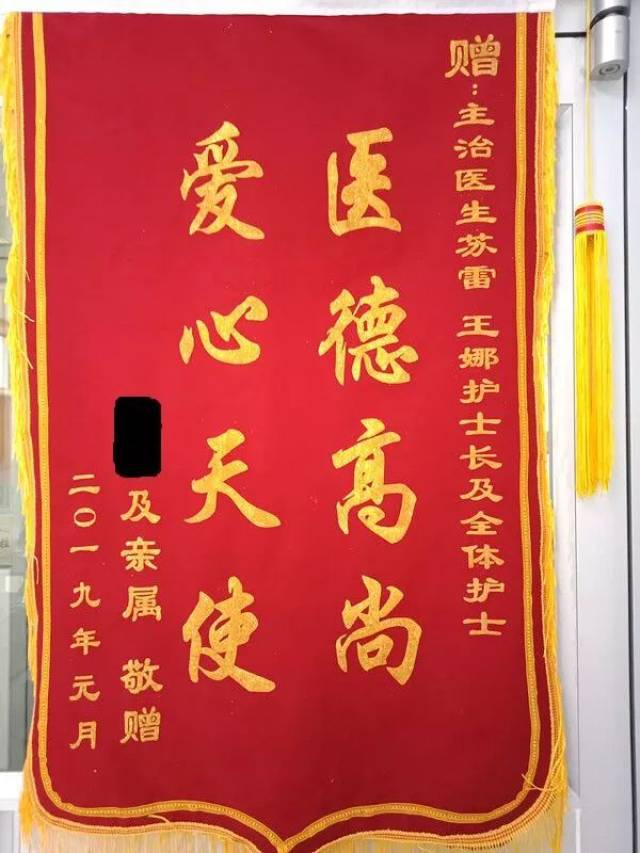 赠：主治医生苏雷 王娜护士长及全体护士
医德高尚
爱心天使
及亲属 敬赠
二〇一九年元月